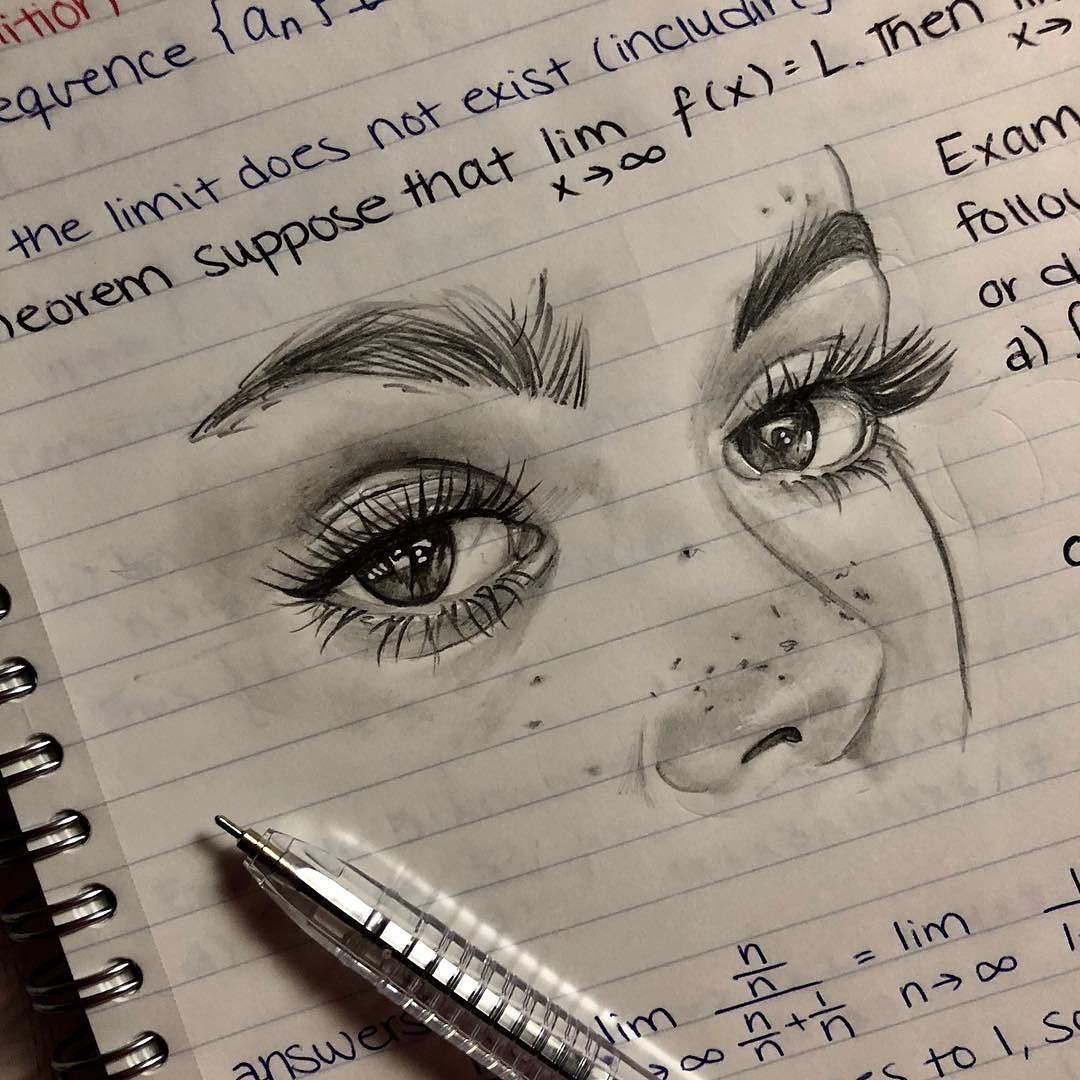 equence {an}
the limit does not exist (includin
heorem suppose that lim x→∞ f(x) = L. Then
x→
Exam
follow
or d
a)
answers
lim n/n / n/n + 1/n = lim n→∞ 1
→∞
es to 1, so